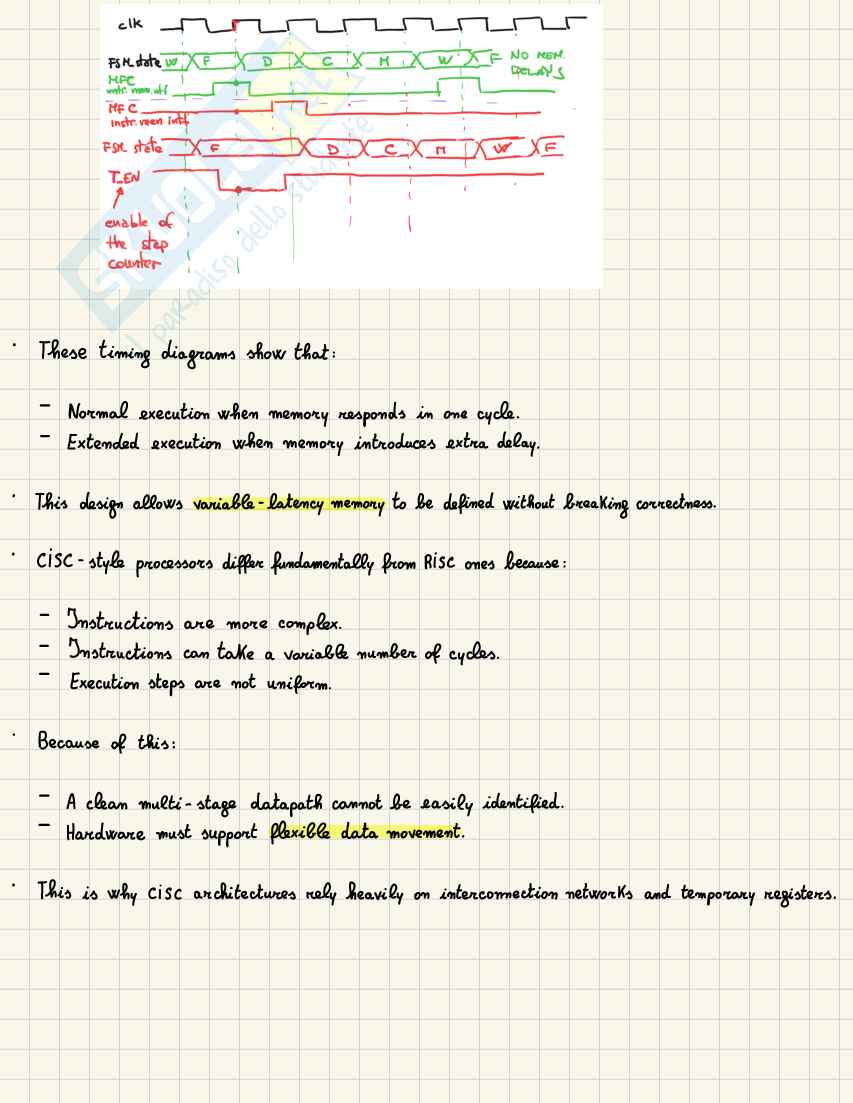 clk
FSM state W F D C M W F NO MEM.
DELAYS
MFC
instr. mem. intf
MFC
instr. mem intf
FSM state F D C M W F
T_EN
enable of
the step
counter
SKUOLA.net
il paradiso dello studente
· These timing diagrams show that:
- Normal execution when memory responds in one cycle.
- Extended execution when memory introduces extra delay.
· This design allows variable-latency memory to be defined without breaking correctness.
· CISC-style processors differ fundamentally from RISC ones because:
- Instructions are more complex.
- Instructions can take a variable number of cycles.
- Execution steps are not uniform.
· Because of this:
- A clean multi-stage datapath cannot be easily identified.
- Hardware must support flexible data movement.
· This is why CISC architectures rely heavily on interconnection networks and temporary registers.